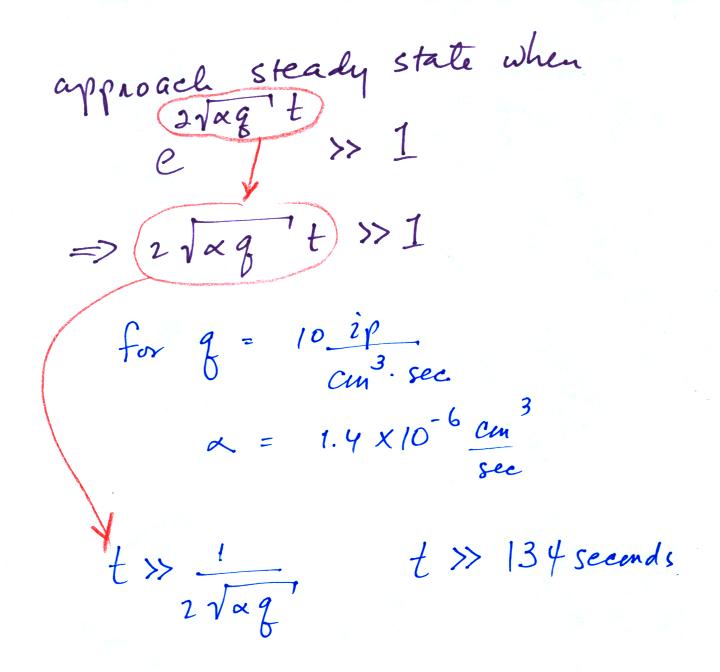 approach steady state when
e^(2√(αq) t) >> 1
⇒ 2√(αq) t >> 1
for q = 10 ip / cm³·sec
α = 1.4 × 10⁻⁶ cm³ / sec
t >> 1 / 2√(αq)    t >> 134 seconds